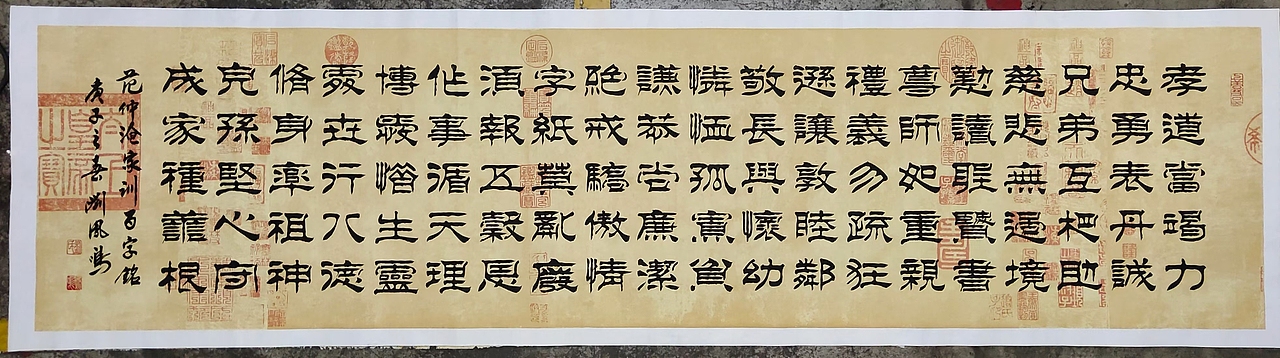 孝道當竭力
忠勇表丹誠
兄弟互相助
慈悲無過境
懃讀聖賢書
尊師如重親
禮義勿疏狂
遜讓敦睦鄰
敬長與懷幼
憐恤孤寡貧
謙恭尚廉潔
絕戒驕傲情
字紙莫亂廢
須報五穀恩
作事循天理
博愛惜生靈
處世行八德
脩身率祖神
兒孫堅心守
成家種善根
范仲淹家训百字铭
庚子之春